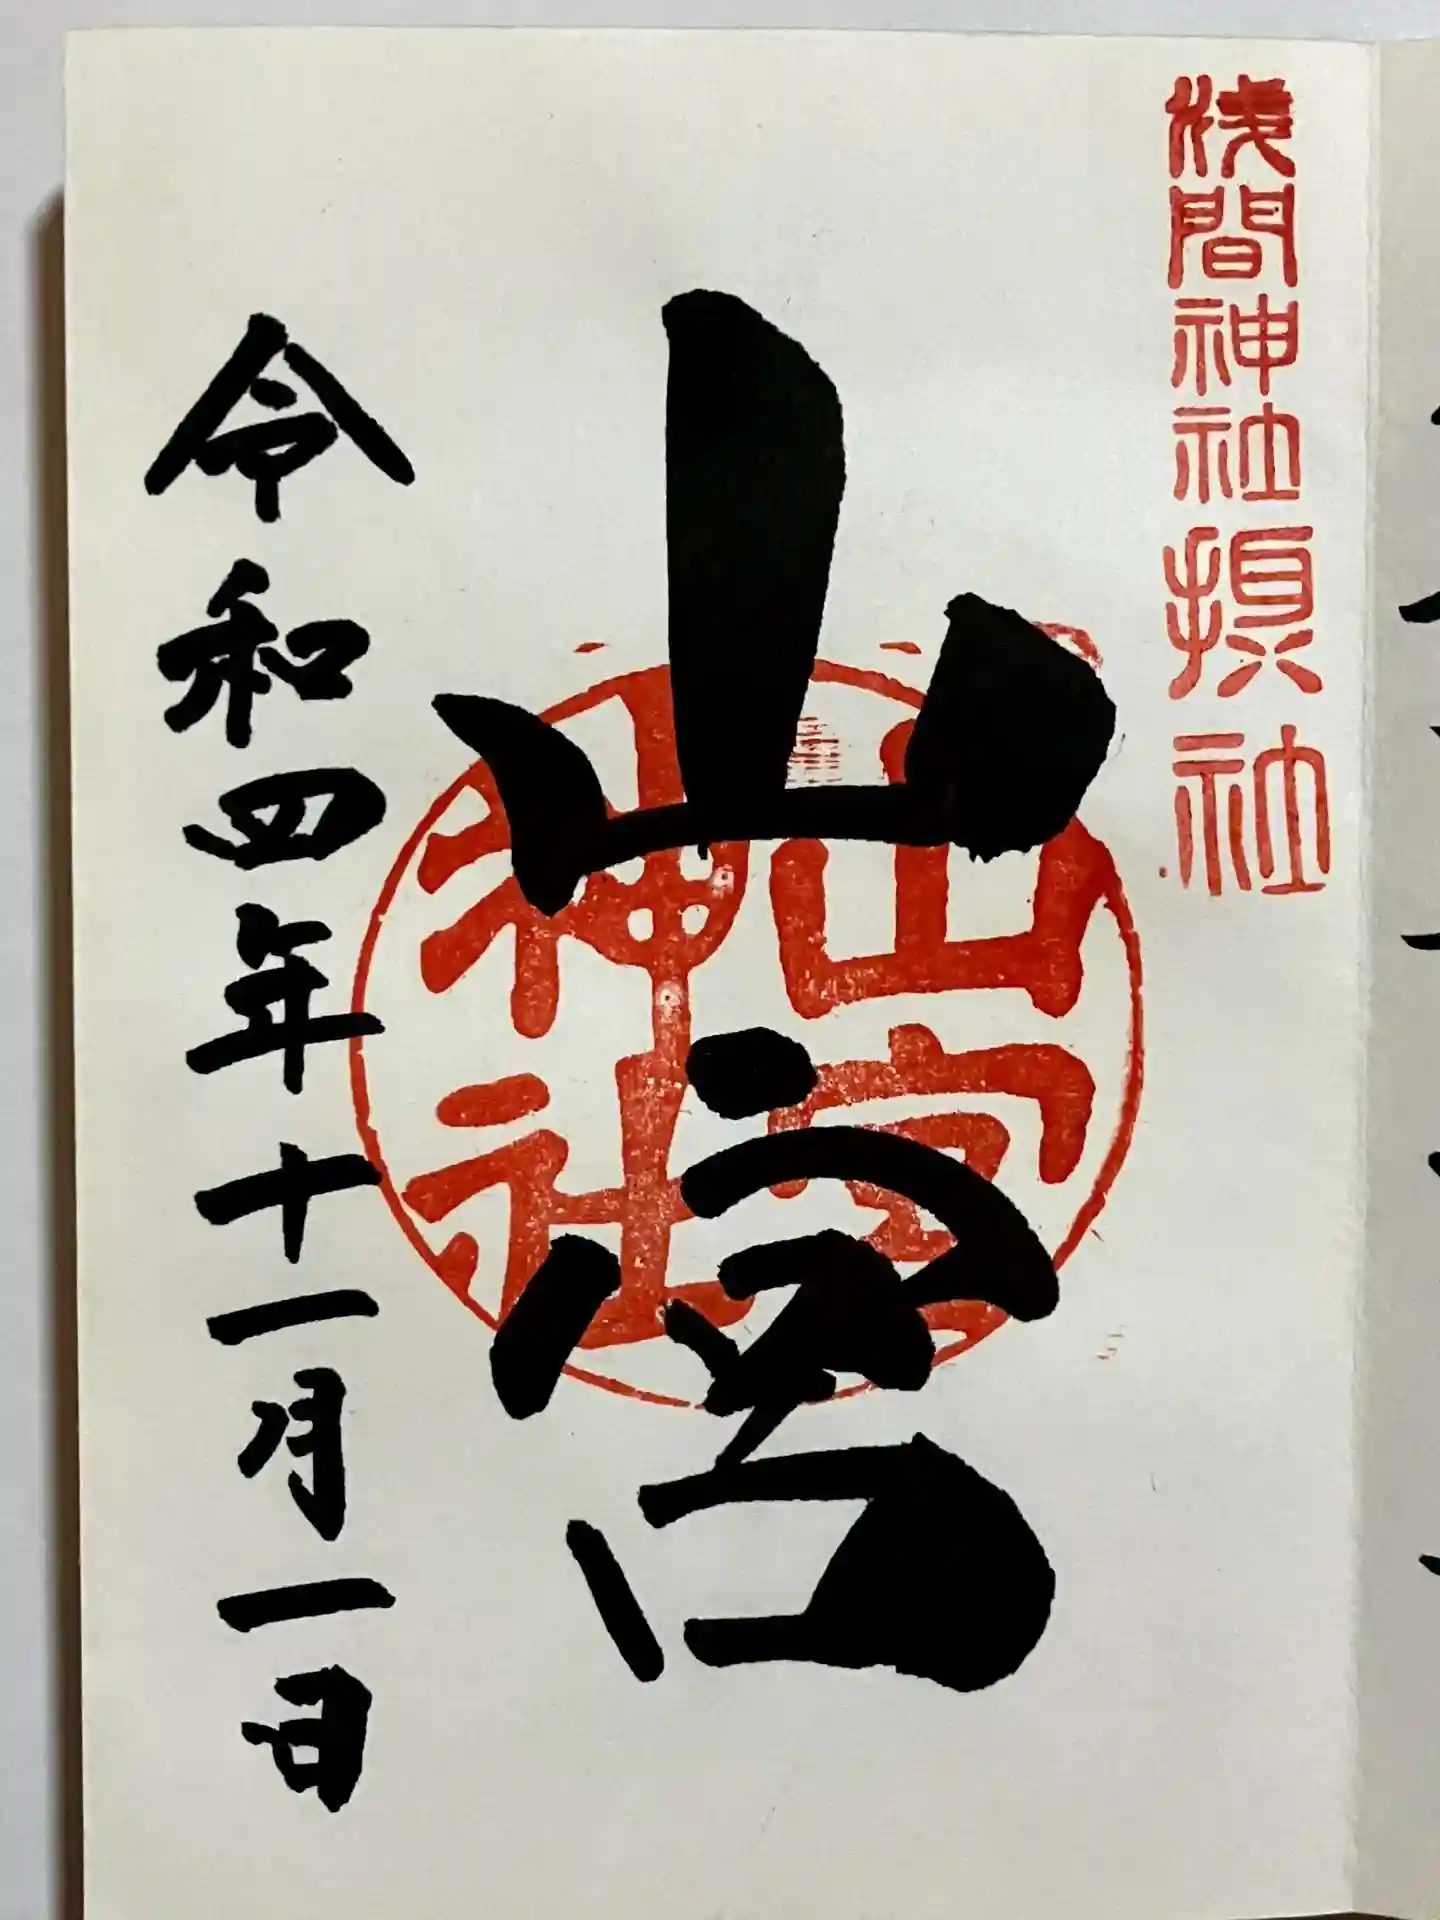 浅間神社摂社
山宮
山宮
神社
令和四年十一月一日